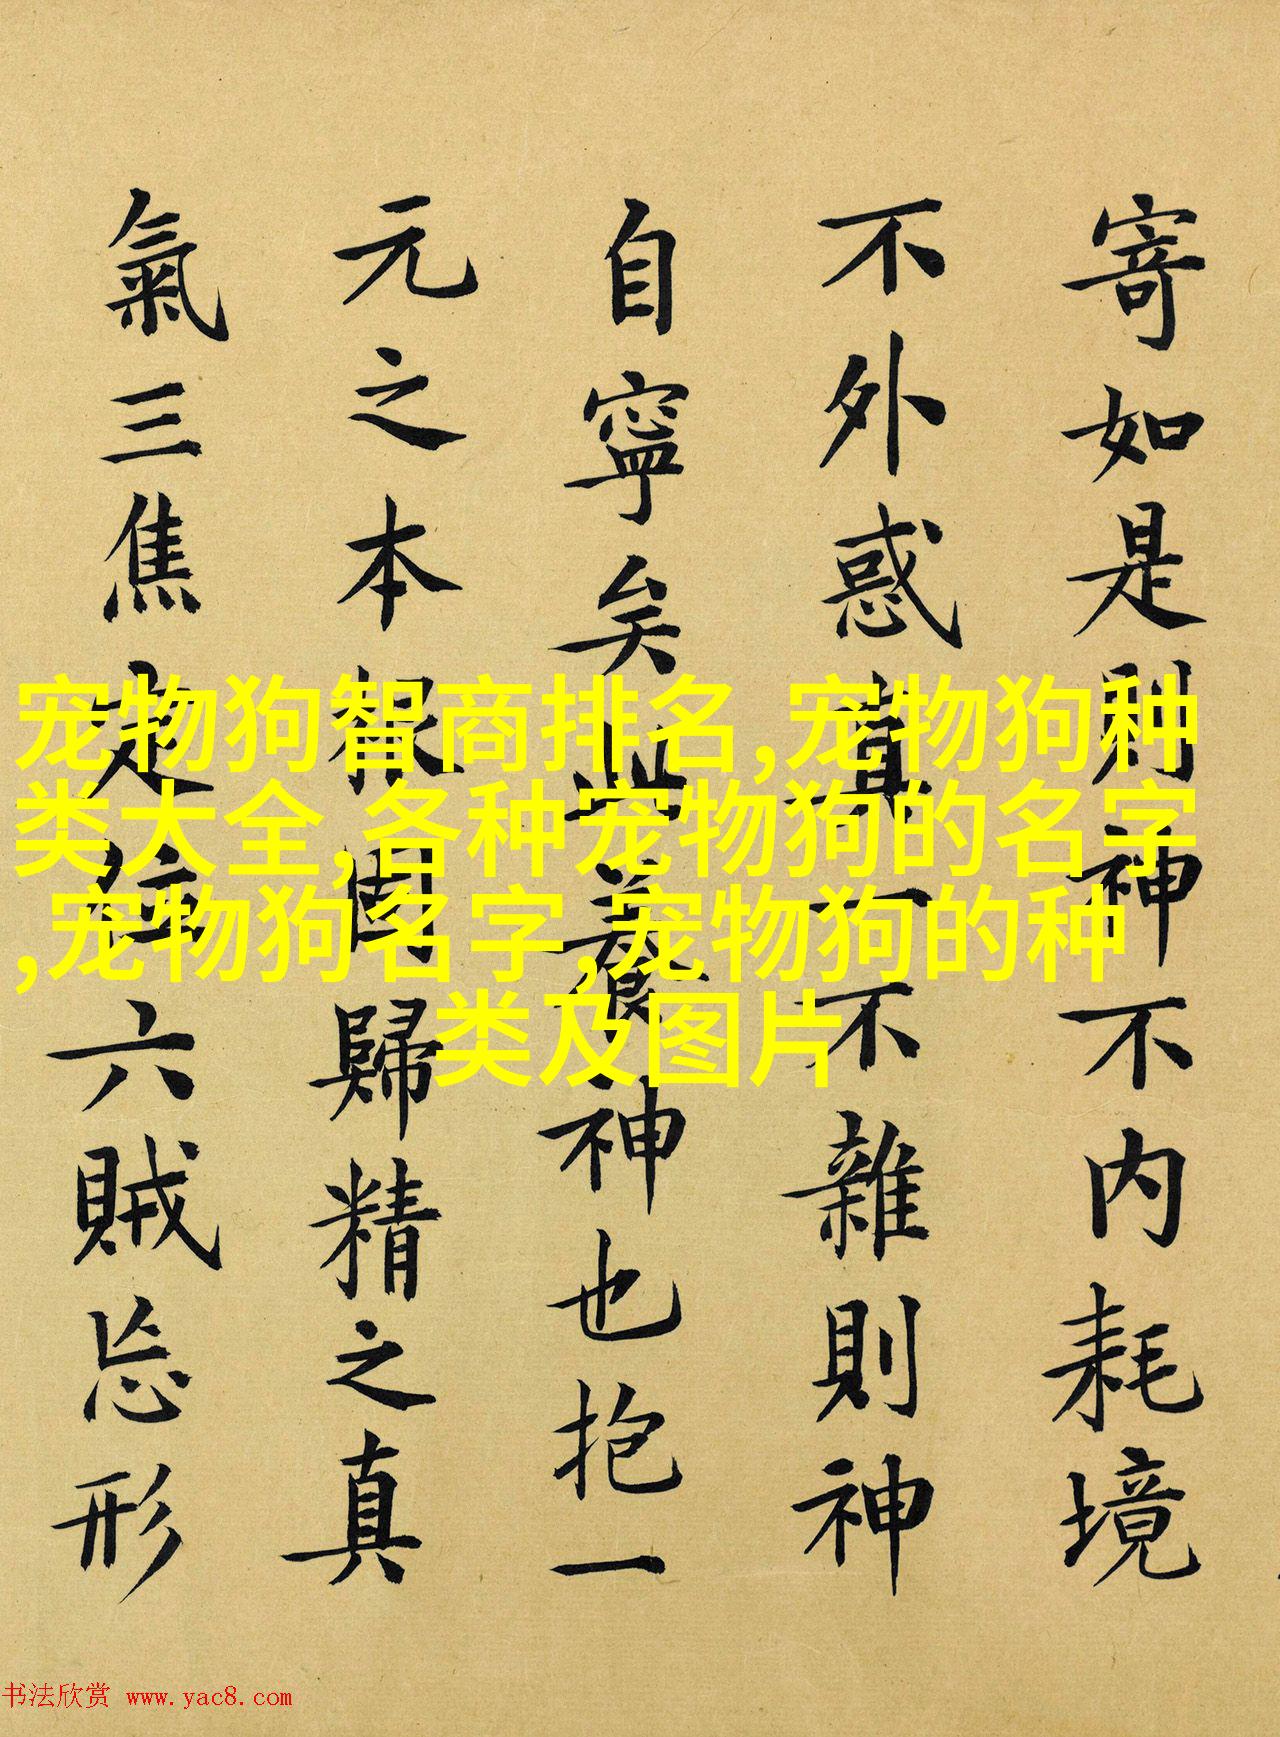 寄如是則神不内耗境
不外惑真一不雜則神
自寧矣此養神也抱一
元之本根固歸精之真
氣三焦定位六賊忘形
宠物狗智商排名,宠物狗种
类大全,各种宠物狗的名字
,宠物狗名字,宠物狗的种
类及图片
书法欣赏 www.yac8.com